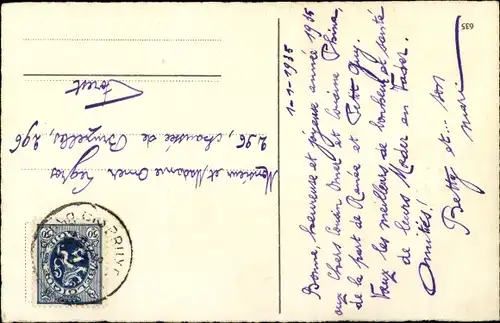 1-1-1935
Bonne, heureuse et joyeuse année 1935
aux Chers Cousin Omer et Cousine
de la part de Renée et Petit Guy.
Vœux les meilleurs de bonheur et santé
de leurs Mader en Vader.
Amitiés!
Betty et... son
mari
635
Monsieur et Madame Omer Legros
296, chaussée de Bruxelles, 296
Forest